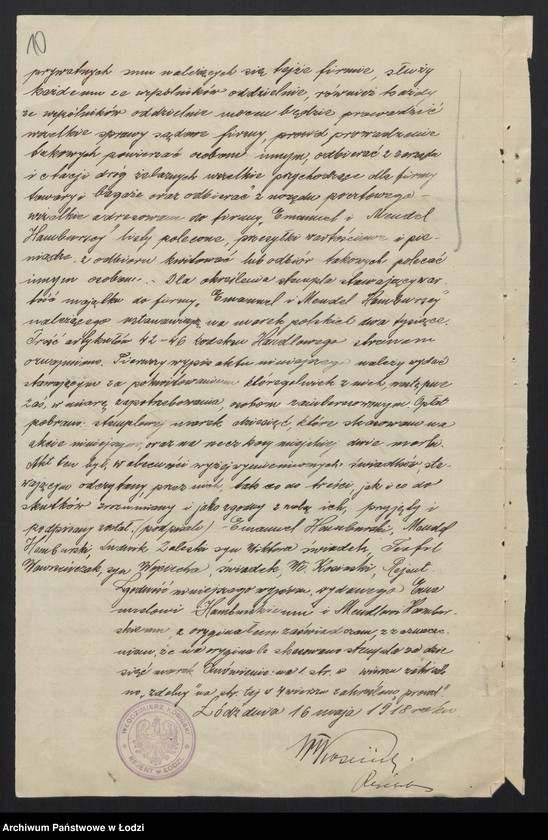 10
prywatnych sum należących się tejże firmie, służy
każdemu ze wspólników oddzielnie, również każdy
ze wspólników oddzielnie mocen będzie prowadzić
wszelkie sprawy sądowe firmy, prawo prowadzenia
takowych powierzać osobom innym, odbierać z zarządu
i stacji dróg żelaznych wszelkie przychodzące dla firmy
towary i bagaże oraz odbierać z urzędu pocztowego
wszelkie adresowane do firmy "Emanuel i Mendel
Hamburscy" listy polecone, przesyłki wartościowe i pie-
niądze, z odbioru kwitować lub odbiór takowych polecać
innym osobom. Dla określenia stempla stawający war-
tość majątku do firmy "Emanuel i Mendel Hamburscy"
należącego ustanawiają na marek polskich dwa tysiące.
Treść artykułów 42-46 Kodeksu Handlowego stronom
oznajmiono. Pierwszy wypis aktu niniejszego należy wydać
stawającym za pokwitowaniem któregokolwiek z nich, następne
zaś, w miarę zapotrzebowania, osobom zainteresowanym. Opłat
pobrano: stemplowej marek dziesięć, które skasowano na
akcie niniejszym, oraz na rzecz kasy miejskiej dwie marki.
Akt ten był, w obecności wyżej wymienionych świadków sta-
wającym odczytany, przez nich, tak co do treści, jak i co do
skutków zrozumiany i jako zgodny z wolą ich, przyjęty i
podpisany został. (podpisali) Emanuel Hamburski, Mendel
Hamburski, Ludwik Zaleski syn Wiktora świadek, Teofil
Wawrzyńczak, syn Wojciecha świadek, Wł. Kosiński, Rejent.
Zgodność niniejszego wypisu, wydanego Ema-
nuelowi Hamburskiemu i Mendlowi Hambur-
skiemu z oryginałem zaświadczam, z zaznacze-
niem, że na oryginale skasowano stempla za dzie-
sięć marek. Omówienie: na 1 str. w wierszu zakreślo-
no, "zdolny" na str. tej w 4 wierszu zakreślono "prawd"
Łódź dnia 16 maja 1918 roku
WKosiński
Rejent
WŁODZIMIERZ KOSIŃSKI
REJENT w ŁODZI
Archiwum Państwowe w Łodzi